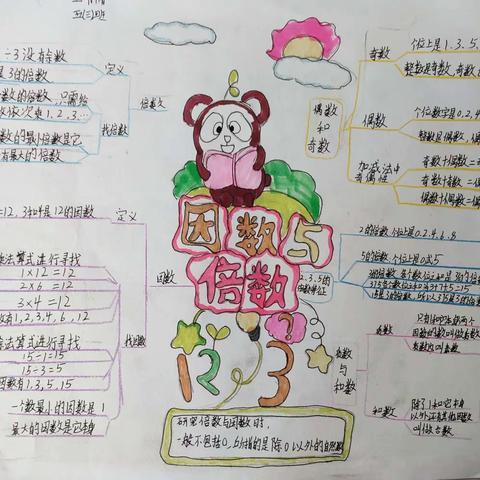 五(三)班
÷3没有余数
是3的倍数
定义
数的倍数,只需给
依次乘1,2,3…
数的最小倍数是它
有最大的倍数
找倍数
倍数
=12,3和4是12的因数
定义
乘法算式进行寻找
1×12=12
2×6=12
3×4=12
有1,2,3,4,6,12
法算式进行寻找
15÷1=15
15÷3=5
因数有1,3,5,15
一个数最小的因数是1
最大的因数是它本身
找因数
因数
因数与
倍数
12
3
?
研究倍数与因数时,
一般不包括0,
除0以外的自然数
偶数
和
奇数
奇数
个位上是1.3.5.
整数是奇数,奇数
偶数
个位数字是0.2.4
整数是偶数,偶
加减法中
奇偶性
奇数+偶数=
奇数+奇数=偶
偶数+偶数=偶
2.3.5的
倍数特征
2的倍数 个位上是0.2.4.6.8
5的倍数 个位上是0或5
3的倍数 各个数位之和是3的倍
质数
与
和数
质数
只有1和它本身两个
因数的数叫做质数
和数
除了1和它本身
以外还有其他因数
叫做合数